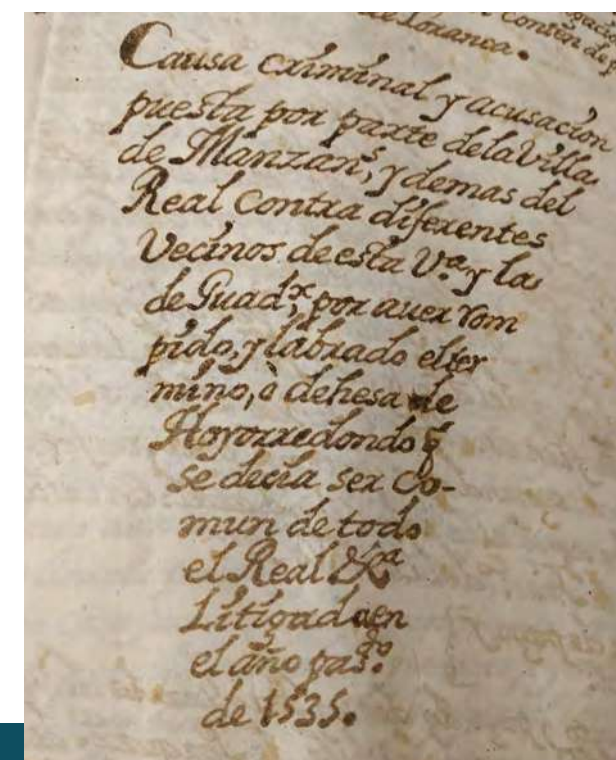 de Loranca.
Causa criminal y acusacion
puesta por parte dela Villa
de Manzan.s, y demas del
Real contra diferentes
Vecinos de esta V.a y la
de Guad.x, por auer rom
pido, y labrado elter
mino, ò dehesa de
Hoyorredondo q̃
se decia ser co-
mun de todo
el Real &.a
Litigada en
el año pas.do
de 1535.